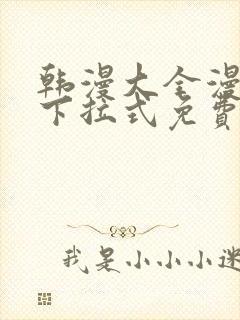 韩漫大全漫
下拉式免费
我是小小小迷